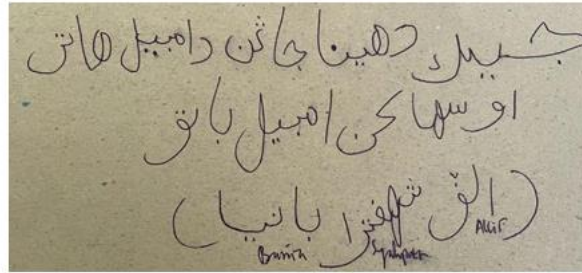 جيك دهينا جاڠن دامبيل هاتي
اوسهاكن امبيل باتو
(الف شهفترا بانيا)
Alif Syahputra Bania